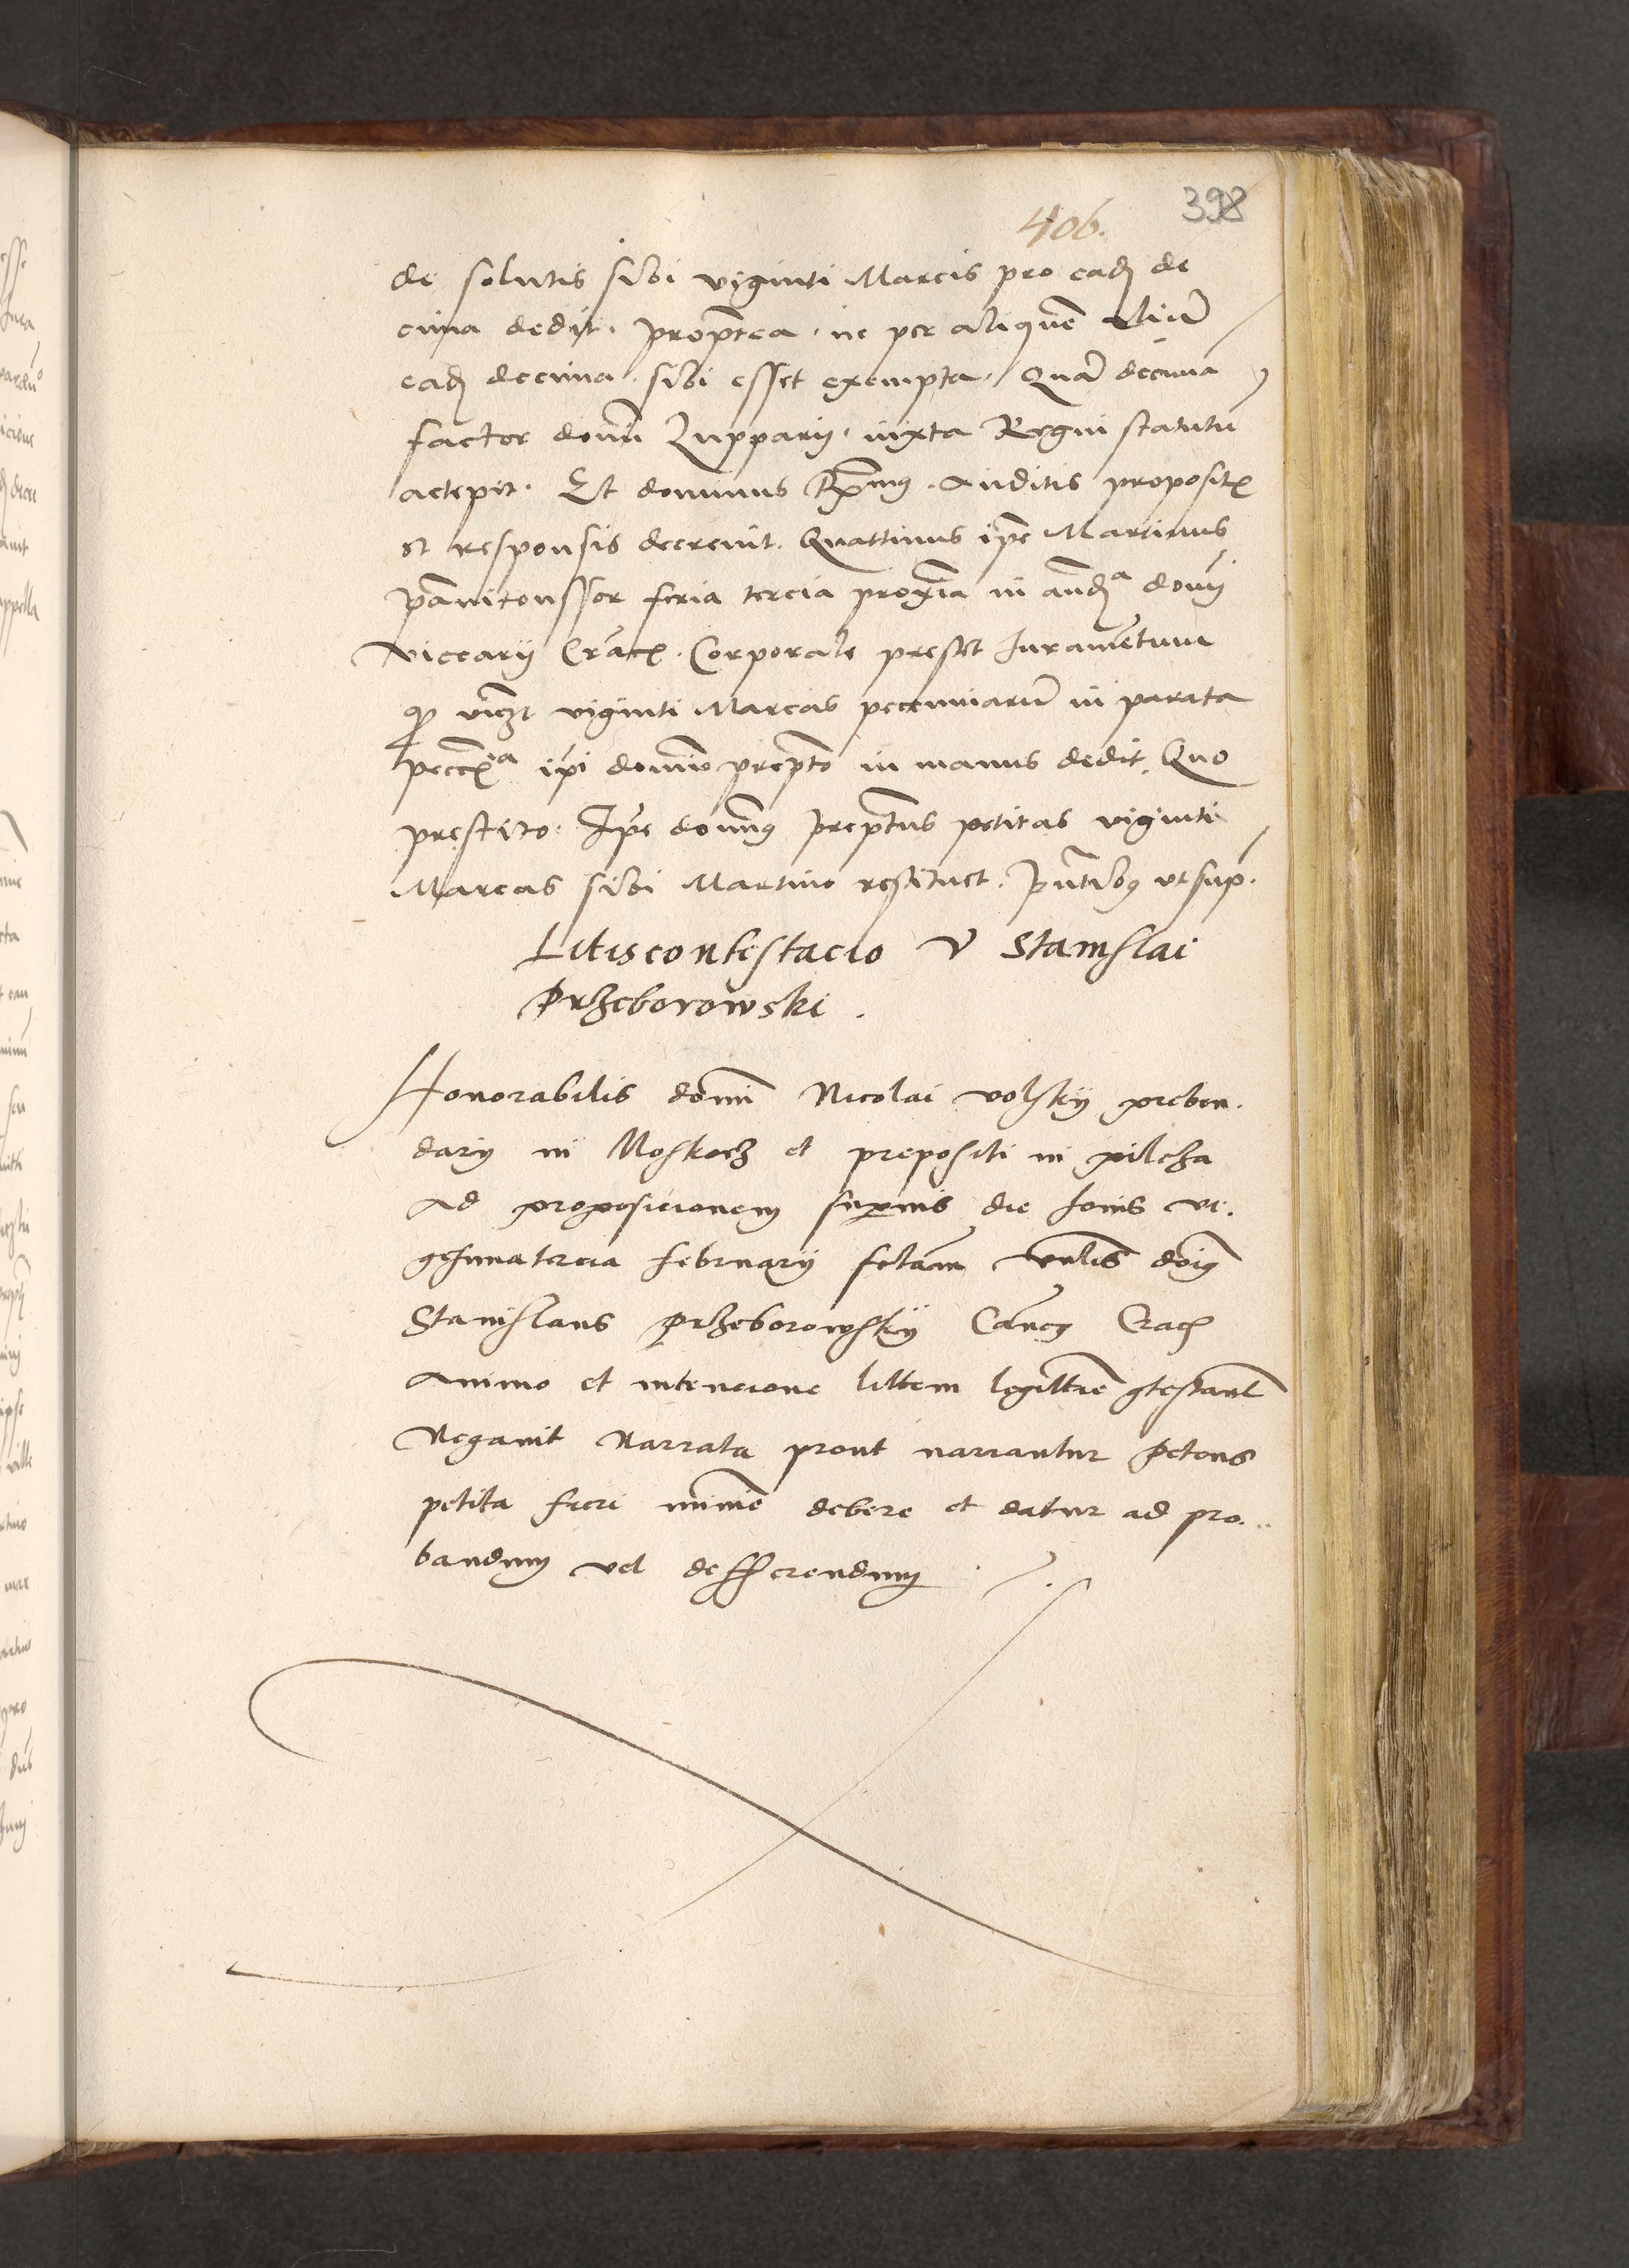 398
406.
de solutis sibi viginti Marcis pro ead de
cima dedit. propterea. ne per aliquem alium
ead decima. sibi esset exempta. Quam decimam
factor domini Zupparij. iuxta Regni statutum
accepit. Et dominus Rmus. Auditis propositis
et responsis decrevit. Quattinus ipe Martinus
feria tercia proxima in domini
viccarij Crac. Corporale prestet Iuramentum
viginti Marcas pecuniarum in parata
ipi domino prepto in manus dedit. Quo
prestito. Ipe dominus preptus petitas viginti
Marcas sibi Martino restituet. Pntibus ut sup.
Litiscontestacio V Stanislai
Przeborowski.
Honorabilis domini Nicolai volsky preben.
darij in Moskorz et prepositi in pilcza
Ad proposicionem superius die Iovis vi.
gesimatercia februarij fctam venlis dominus
Stanislaus Przeborowsky Cancus Crac
Animo et intencione littem legittime contestand
Negavit Narrata prout narrantur petens
petita fieri minime debere et datur ad pro..
bandum vel defferendum